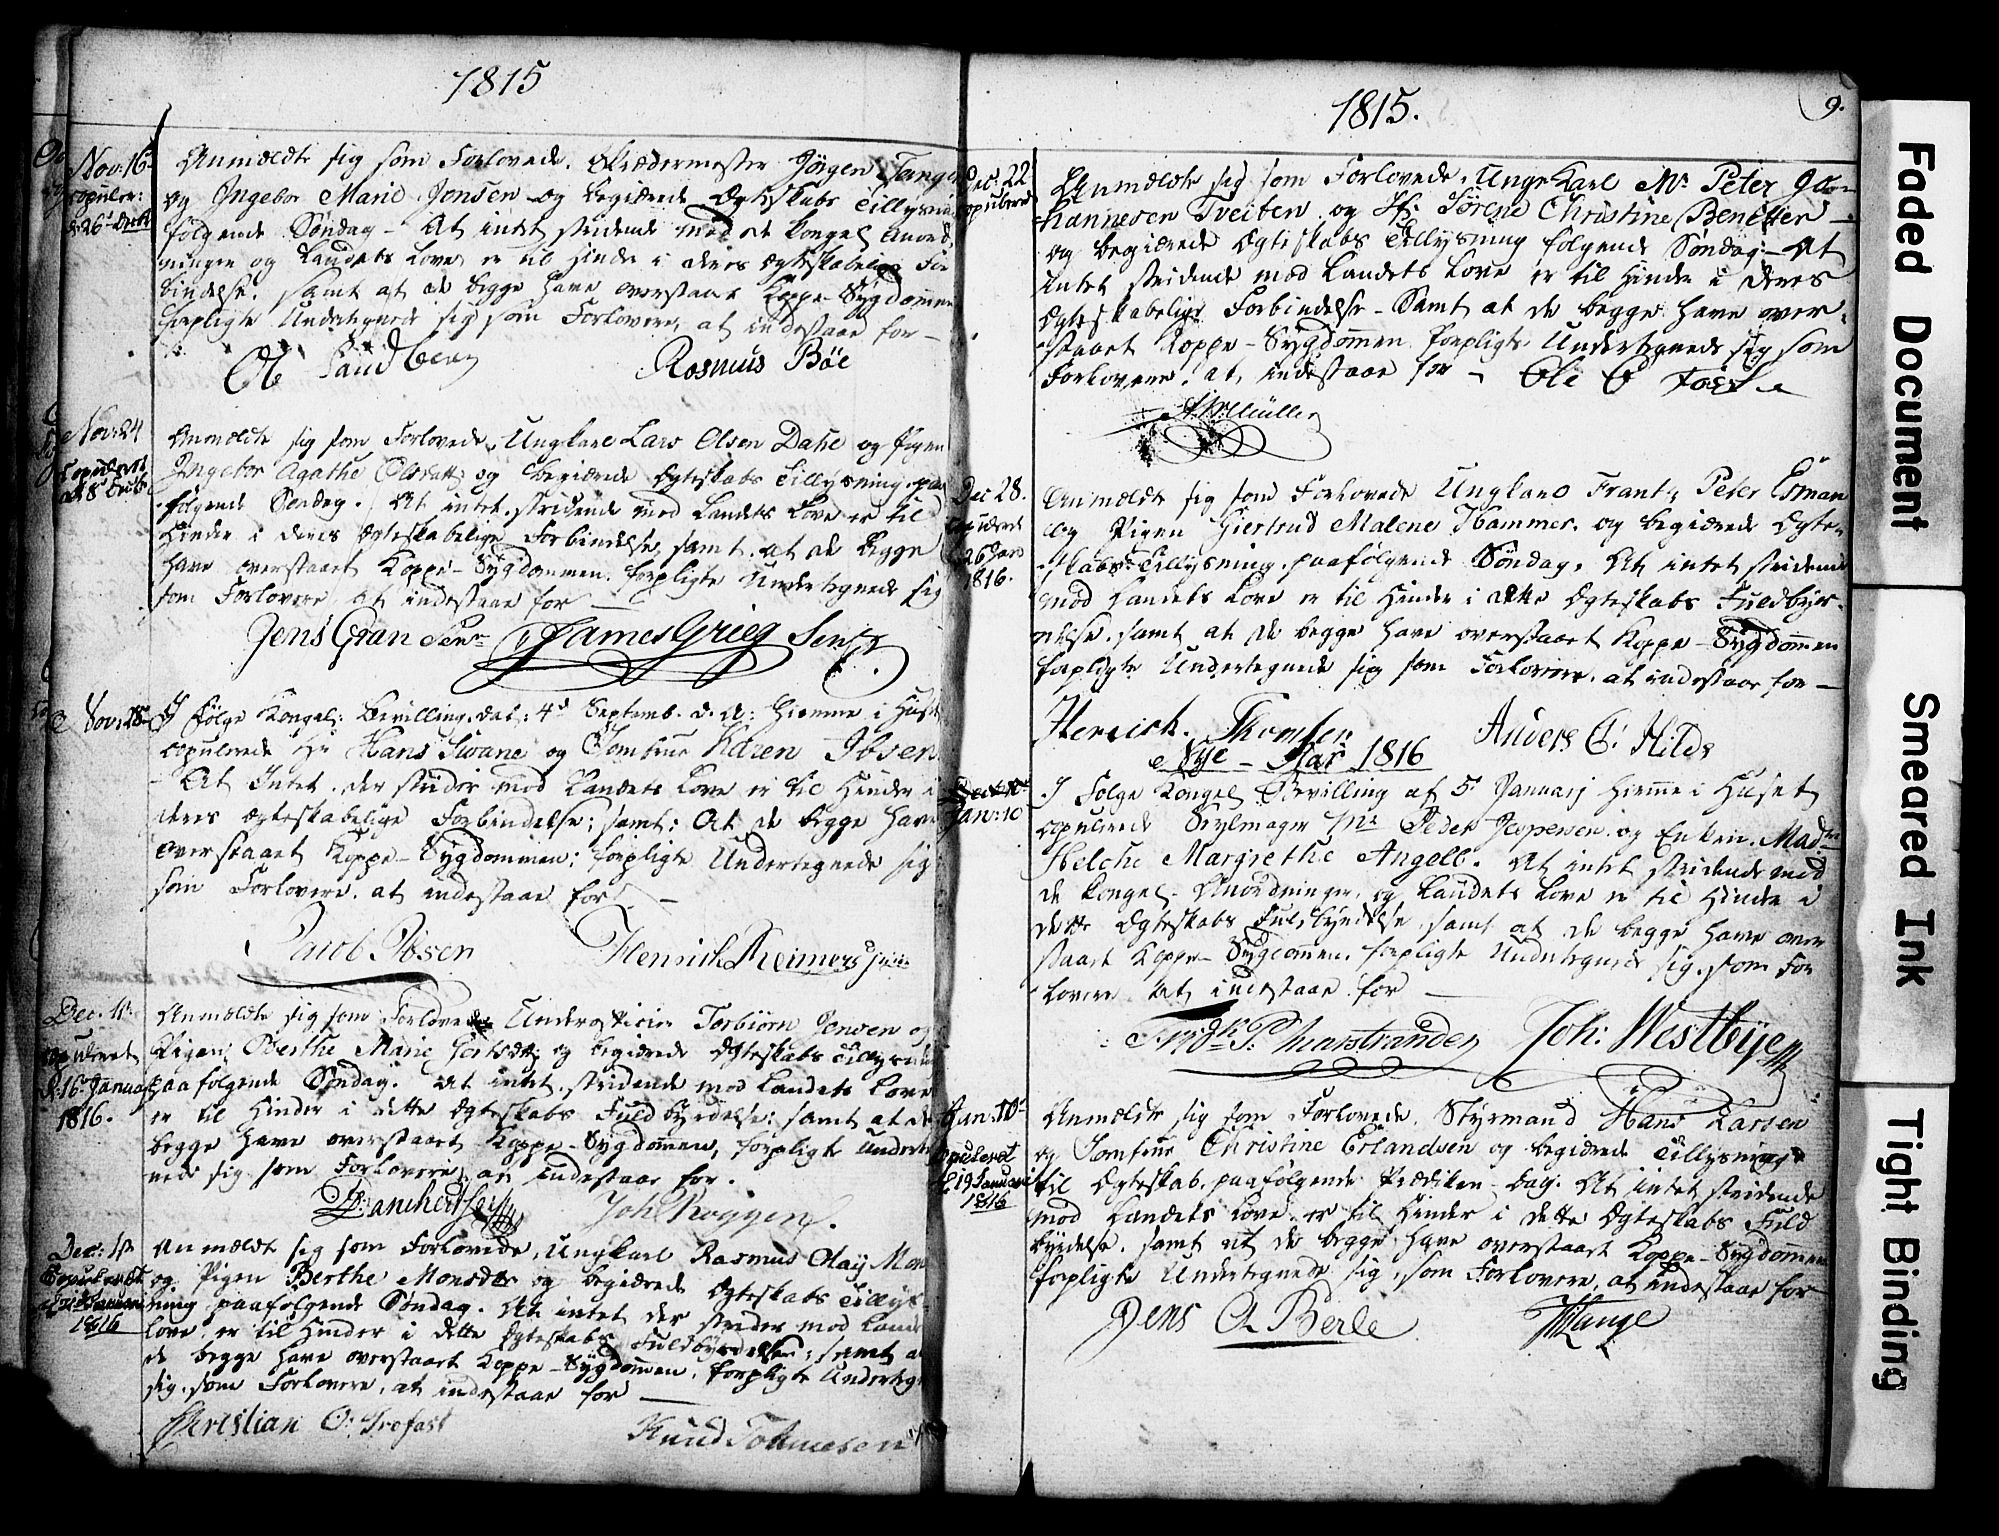 1815
Nov: 16
copuler:
d: 26 Decbr
Anmældte sig som Forlovede, Skrædermester Jörgen Tang
og Ingebor Marie Jensen og begiærede Ægteskabs Tillysning
følgende Søndag – At intet stridende mod de kongel Anord
ninger og Landets Love er til Hinder i deres ægteskabelige For
bindelse, samt at de begge have overstaaet Koppe-Sygdommen
forpligte Undertegnede sig som Forlovere, at indestaae for –
Ole Sandberg Rasmus Böe
Nov: 24
Copuleret
Anmældte sig som Forlovede, Ungkarl Lars Olsen Dahl og Pigen
Ingebor Agathe og begiærede Ægteskabs Tillysning paa
følgende Søndag. At intet stridende mod Landets Love er til
Hinder i deres ægteskabelige Forbindelse, samt at de begge
have overstaaet Koppe-Sygdommen, forpligte Undertegnede sig
som Forlovere, at indestaae for –
Jens Gran Senr James Grieg Senr
Nov: 28
I følge Kongel: Bevilling, dat: 4d Septemb. d. A: hiemme i Huset
copulerede Hr Hans Swane og Jomfrue Karen Ibsen
At Intet, der strider mod Landets Love er til Hinder i
deres ægteskabelige Forbindelse; samt: At de begge have
overstaaet Koppe-Sygdommen; forpligte Undertegnede sig
som Forlovere, at indestaae for –
Jacob Ibsen Henrich Reimers junr
Dec. 1st
Copuleret
d: 16 Januar
1816.
Anmældte sig som Forlovede Underofficier Torbiørn Jensen og
Pigen Berthe Marie og begiærede Ægteskabs Tillysning
paafølgende Søndag. At intet stridende mod Landets Love
er til Hinder i dette Ægteskabs Fuldbyrdelse; samt at de
begge have overstaaet Koppe-Sygdommen, forpligte Underteg
nede sig som Forlovere, at indestaae for.
Danchertsen Joh Roggen
Dec: 1st
Copuleret
Januari
1816
Anmældte sig som Forlovede, Ungkarl Rasmus Olay Mon
og Pigen Berthe Monsdtr og begiærede Ægteskabs Tillys
ning paafølgende Søndag. At intet der strider mod Land
love er til Hinder i dette Ægteskabs Fuldbyrdelse; samt a
de begge have overstaaet Koppe-Sygdommen, forpligte Underteg
sig, som Forlovere, at indestaae for –
Christian O: Trofast Knud Tollevsen
1815.
9.
Dec: 22
copulerede
Anmældte sig som Forlovede, Unge Karl Mr Peter Jo-
hannesen Tveiten og Jfr Sörene Christine Benetter
og begiærede Ægteskabs Tillysning følgende Søndag – At
intet stridende mod Landets Love er til Hinder i deres
Ægteskabelige Forbindelse – Samt at de begge have over-
staaet Koppe-Sygdommen forpligte Undertegnede sig som
Forlovere, at indestaae for – Ole
Müller
Dec 28.
copulerede
d 26 Jan
1816.
Anmældte sig som Forlovede Ungkarl Frantz Peter Esman
og Pigen Giertrud Malene Hammer, og begiærede Ægte-
skabs Tillysning paafølgende Søndag. At intet stridende
mod Landets Love er til Hinder i dette Ægteskabs Fuldbyr-
delse, samt at de begge have overstaaet Koppe-Sygdommen
forpligte Undertegnede sig som Forlovere, at indestaae for –
Henrich Thomsen Anders C: Hilds
Nye – Aar 1816
Jan: 10
I Følge Kongel Bevilling af 5 Januarj hiemme i Huset
copulerede Seylmager Mr Peder Jespersen og Enken Madme
Helche Margrethe Angell. At intet stridende mod
de kongel. Anordninger og Landets Love er til Hinder i
dette Ægteskabs Fuldbyrdelse, samt at de begge have over
staaet Koppe-Sygdommen, forpligte Undertegnede sig, som For
lovere at indestaae for –
Marstrander Joh: Westbye
Jan: 10
Copuleret
d: 19 Januarii
1816
Anmældte sig som Forlovede, Styrmand Hans Larsen
og Jomfrue Christine Erlandsen og begiærede Tillysning
til Ægteskab paafølgende Prædiken-Dag. At intet stridende
mod Landets Love er til Hinder i dette Ægteskabs Fuld
byrdelse, samt at de begge have overstaaet Koppe-Sygdommen
forpligte Undertegnede sig, som Forlovere, at indestaae for
Jens A Berle
Faded Document
Smeared Ink
Tight Binding